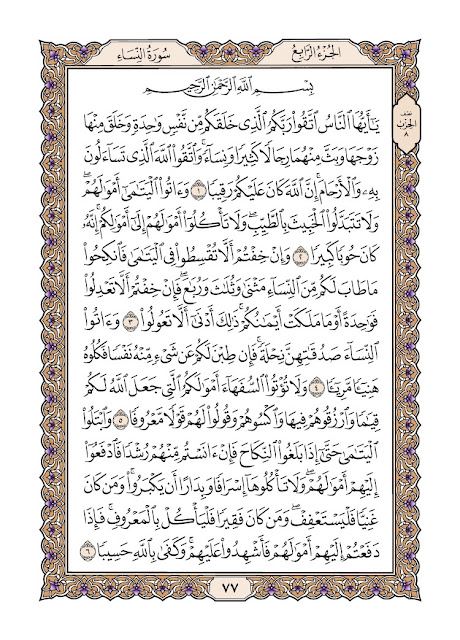 الجُزْءُ الرَّابِعُ
سُورَةُ النِّسَاءِ
بِسْمِ اللَّهِ الرَّحْمَٰنِ الرَّحِيمِ
نصف
الحِزْبِ
٨
يَـٰٓأَيُّهَا ٱلنَّاسُ ٱتَّقُوا۟ رَبَّكُمُ ٱلَّذِى خَلَقَكُم مِّن نَّفْسٍ وَٰحِدَةٍ وَخَلَقَ مِنْهَا
زَوْجَهَا وَبَثَّ مِنْهُمَا رِجَالًا كَثِيرًا وَنِسَآءً ۚ وَٱتَّقُوا۟ ٱللَّهَ ٱلَّذِى تَسَآءَلُونَ
بِهِۦ وَٱلْأَرْحَامَ ۚ إِنَّ ٱللَّهَ كَانَ عَلَيْكُمْ رَقِيبًا ١ وَءَاتُوا۟ ٱلْيَتَـٰمَىٰٓ أَمْوَٰلَهُمْ ۖ
وَلَا تَتَبَدَّلُوا۟ ٱلْخَبِيثَ بِٱلطَّيِّبِ ۖ وَلَا تَأْكُلُوٓا۟ أَمْوَٰلَهُمْ إِلَىٰٓ أَمْوَٰلِكُمْ ۚ إِنَّهُۥ
كَانَ حُوبًا كَبِيرًا ٢ وَإِنْ خِفْتُمْ أَلَّا تُقْسِطُوا۟ فِى ٱلْيَتَـٰمَىٰ فَٱنكِحُوا۟
مَا طَابَ لَكُم مِّنَ ٱلنِّسَآءِ مَثْنَىٰ وَثُلَـٰثَ وَرُبَـٰعَ ۖ فَإِنْ خِفْتُمْ أَلَّا تَعْدِلُوا۟
فَوَٰحِدَةً أَوْ مَا مَلَكَتْ أَيْمَـٰنُكُمْ ۚ ذَٰلِكَ أَدْنَىٰٓ أَلَّا تَعُولُوا۟ ٣ وَءَاتُوا۟
ٱلنِّسَآءَ صَدُقَـٰتِهِنَّ نِحْلَةً ۚ فَإِن طِبْنَ لَكُمْ عَن شَىْءٍ مِّنْهُ نَفْسًا فَكُلُوهُ
هَنِيٓـًٔا مَّرِيٓـًٔا ٤ وَلَا تُؤْتُوا۟ ٱلسُّفَهَآءَ أَمْوَٰلَكُمُ ٱلَّتِى جَعَلَ ٱللَّهُ لَكُمْ
قِيَـٰمًا وَٱرْزُقُوهُمْ فِيهَا وَٱكْسُوهُمْ وَقُولُوا۟ لَهُمْ قَوْلًا مَّعْرُوفًا ٥ وَٱبْتَلُوا۟
ٱلْيَتَـٰمَىٰ حَتَّىٰٓ إِذَا بَلَغُوا۟ ٱلنِّكَاحَ فَإِنْ ءَانَسْتُم مِّنْهُمْ رُشْدًا فَٱدْفَعُوٓا۟
إِلَيْهِمْ أَمْوَٰلَهُمْ ۖ وَلَا تَأْكُلُوهَآ إِسْرَافًا وَبِدَارًا أَن يَكْبَرُوا۟ ۚ وَمَن كَانَ
غَنِيًّا فَلْيَسْتَعْفِفْ ۖ وَمَن كَانَ فَقِيرًا فَلْيَأْكُلْ بِٱلْمَعْرُوفِ ۚ فَإِذَا
دَفَعْتُمْ إِلَيْهِمْ أَمْوَٰلَهُمْ فَأَشْهِدُوا۟ عَلَيْهِمْ ۚ وَكَفَىٰ بِٱللَّهِ حَسِيبًا ٦
٧٧